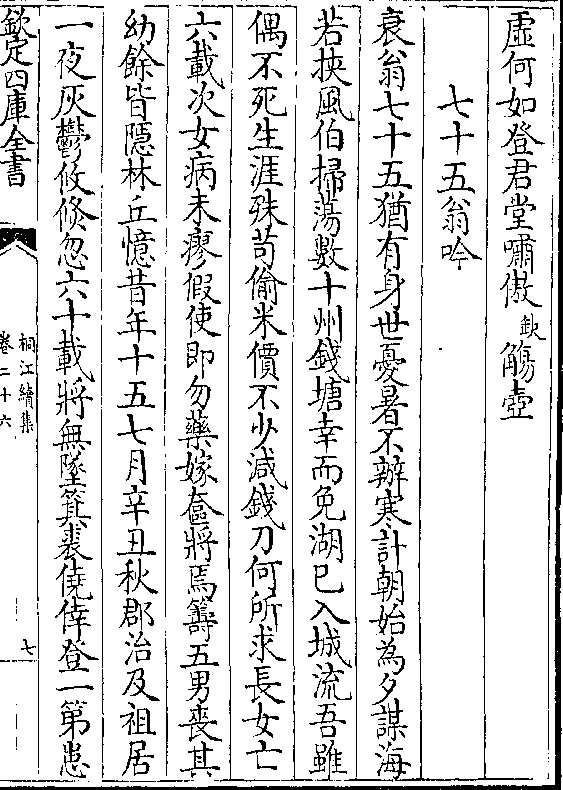 虛何如登君堂嘯傲欽觴壺
七十五翁吟
衰翁七十五猶有身世憂暑不辦寒計朝始為夕謀海
若挾風伯掃蕩數十州錢塘幸而免湖已入城流吾雖
偶不死生涯殊苟偷米價不少減錢刀何所求長女亡
六載次女病未瘳假使即勿藥嫁奩將焉籌五男喪其
幼餘皆隱林丘憶昔年十五七月辛丑秋郡治及祖居
一夜灰鬱攸倐忽六十載將無墜箕裘僥倖登一第患
欽定四庫全書
桐江續集
卷二十六
七